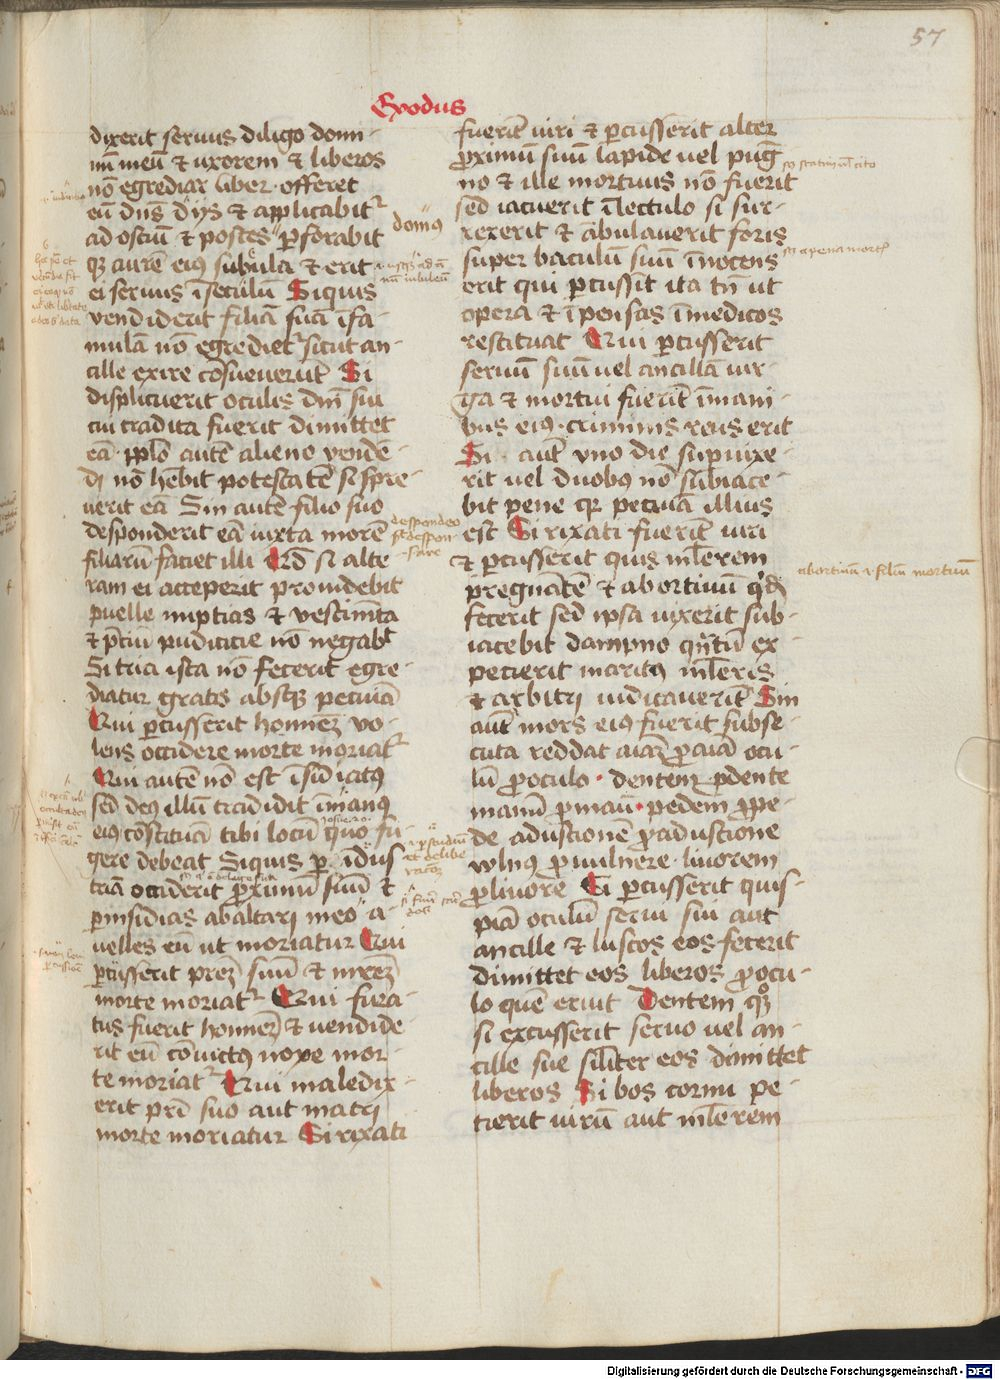 57
Exodus
dixerit seruus diligo domi-
nū meū & uxorem & liberos
nō egrediar liber · offeret
eū dn̄s dijs & applicabit᷑
ad ostiū & postes p̱forabit
qȝ aurē eiꝯ subula & erit
ei seruus ī seculū Siquis
vendiderit filiā suā ī fa-
mulā nō egrediet᷑ sicut an-
cille exire cōsueuerūt Si
displicuerit oculis dn̄i sui
cui tradita fuerit dimittet
eā · pplō autē alieno vende-
di nō hēbit potestatē si spre-
uerit eā Sin autē filio suo
desponderit eā iuxta morē
filiarū faciet illi Qd̄ si alte
ram ei acceperit prouidebit
puelle nuptias & vestimēta
& p̄ciū pudicicie nō negabt
Si tria ista nō fecerit egre-
diatur gratis absqȝ pecuīa
Qui p̱cusserit hominēȝ vo-
lens occidere morte moriat᷑
Qui autē nō est īsidiatꝯ
sed deꝯ illū tradidit ī manꝯ
eiꝯ cōstituā tibi locū quo fu-
gere debeat Siquis p̱ īdus
triā occiderit ꝓximū suū &
p̱ insidias ab altari meo a-
uelles eū ut moriatur Qui
p̱cusserit prēȝ suū & mrēȝ
morte moriat᷑ Qui fura-
tus fuerit hominēȝ & uendide-
rit eū cōuictꝯ noxe mor-
te moriat᷑ Qui maledix-
erit prī suo aut matri
morte moriatur Si rixati
fuerīt uiri & p̱cusserit alter
ꝓximū suū lapide uel pug-
no & ille mortuus nō fuerit
sed iacuerit ī lectulo si sur-
rexerit & ābulauerit foris
super baculū suū īnocens
erit qui p̱cussit ita tn̄ ut
opera & īpensas ī medicos
restituat Qui p̱cusserit
seruū suū uel ancillā uir-
ga & mortui fuerīt ī mani-
bus eiꝯ · criminis reus erit
Si autē vno die supuixe-
rit vel duobus nō subiace-
bit pene qȝ pecuīa illius
est Si rixati fuerīt uiri
& p̱cusserit quis ml̄ierem
pregnātē & abortiuū qd̄ē
fecerit sed ipsa uixerit sub-
iacebit dampno qn̄tū ex-
pecierit maritꝯ ml̄ieris
& arbitri iudicauerīt Sin
autē mors eiꝯ fuerit subse-
cuta reddat aīaꝫ ꝓ aīa ocu-
lū ꝓ oculo · dentem ꝓ dente
manū ꝓ manu · pedem ꝓ pe-
de adustionē ꝓ adustione
vulnꝯ ꝓ uulnere · liuorem
ꝓ liuore Si p̱cusserit quis-
piā oculū serui sui aut
ancille & luscos eos fecerit
dimittet eos liberos ꝓ ocu-
lo quē eruit Dentem qȝ
si excusserit seruo uel an-
cille sue sil̄iter eos dimittet
liberos Si bos cornu pe-
tierit uirū aut ml̄ierem
domꝯ
despondeo
abortiuū · i · filiū mortuū
Digitalisierung gefördert durch die Deutsche Forschungsgemeinschaft - DFG